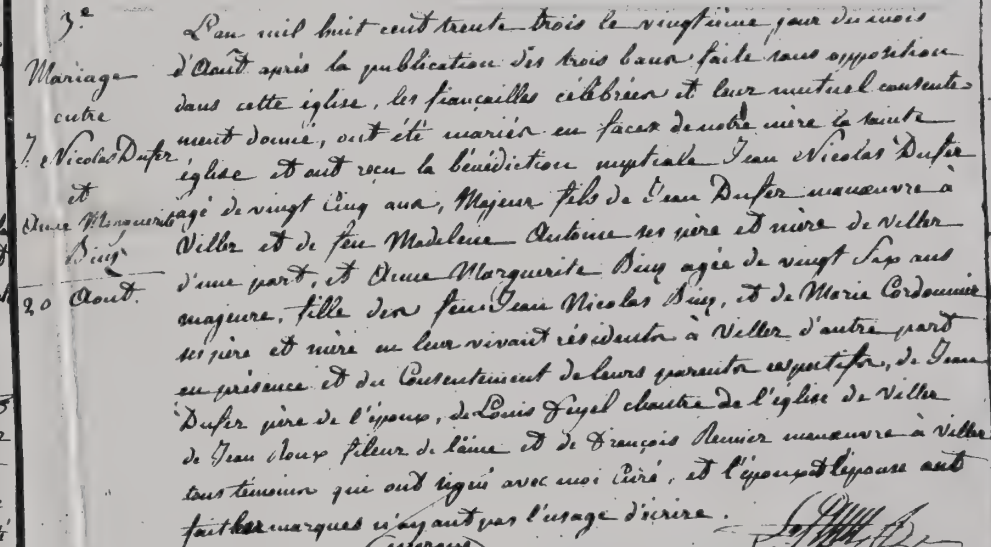 3.e
Mariage
entre
J. Nicolas Dufer
et
Anne Marguerite
Binz
20 Aout.
L'an mil huit cent trente trois le vingtième jour du mois
d'Août après la publication des trois bans faite sans opposition
dans cette église, les fiancailles célébrées et leur mutuel consente-
ment donné, ont été mariés en face de notre mère la sainte
église et ont reçu la bénédiction nuptiale Jean Nicolas Dufer
agé de vingt cinq ans, Majeur fils de Jean Dufer manœuvre à
Viller et de feu Madeleine Antoine ses père et mère de Viller
d'une part, et Anne Marguerite Binz agée de vingt Six ans
majeure, fille des feu Jean Nicolas Binz, et de Marie Cordonnier
ses père et mère en leur vivant résidents à Viller d'autre part
en présence et du Consentement de leurs parents respectifs, de Jean
Dufer père de l'époux, de Louis chantre de l'église de Viller
de Jean Roux fileur de laine et de François Renier manœuvre à Viller
tous témoins qui ont signé avec moi Curé, et l'époux et l'épouse ont
fait les marques n'ayant pas l'usage d'écrire.